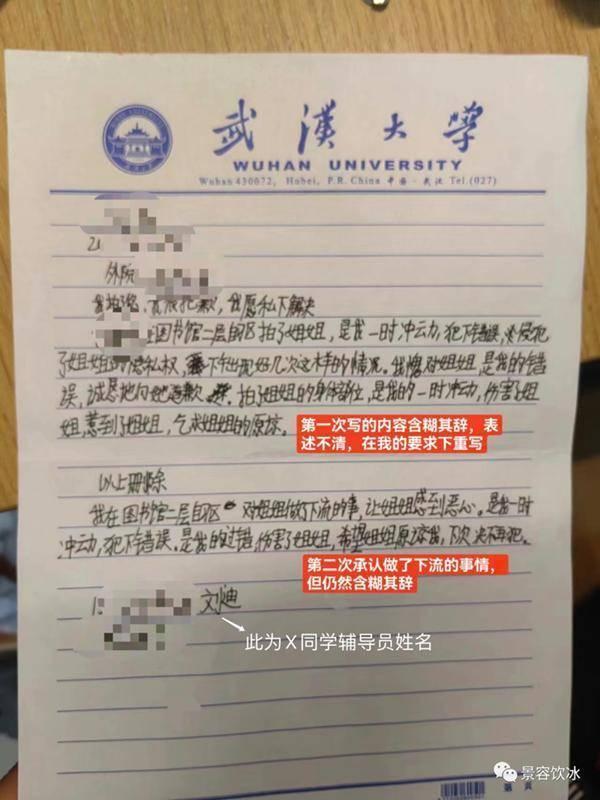 武漢大學
WUHAN UNIVERSITY
Wuhan 430072, Hubei, P.R. China 中国·武汉 Tel.(027)
外院
我抱歉,我很抱歉,我愿私下解决
在图书馆二层自区拍了姐姐,是我一时冲动,犯下错误,侵犯
了姐姐的隐私权,下午出现好几次这样的情况。我愧对姐姐,是我的错
误,诚恳地向她道歉。拍了姐姐的身体部位,是我的一时冲动,伤害了姐
姐,惹到了姐姐,乞求姐姐的原谅。
第一次写的内容含糊其辞,表
述不清,在我的要求下重写
以上删除
我在图书馆二层自区对姐姐做下流的事,让姐姐感到恶心。是我一时
冲动,犯下错误。是我的过错,伤害了姐姐,希望姐姐原谅我,下次决不再犯。
第二次承认做了下流的事情,
但仍然含糊其辞
文迪
此为X同学辅导员姓名
景容饮冰
第 页